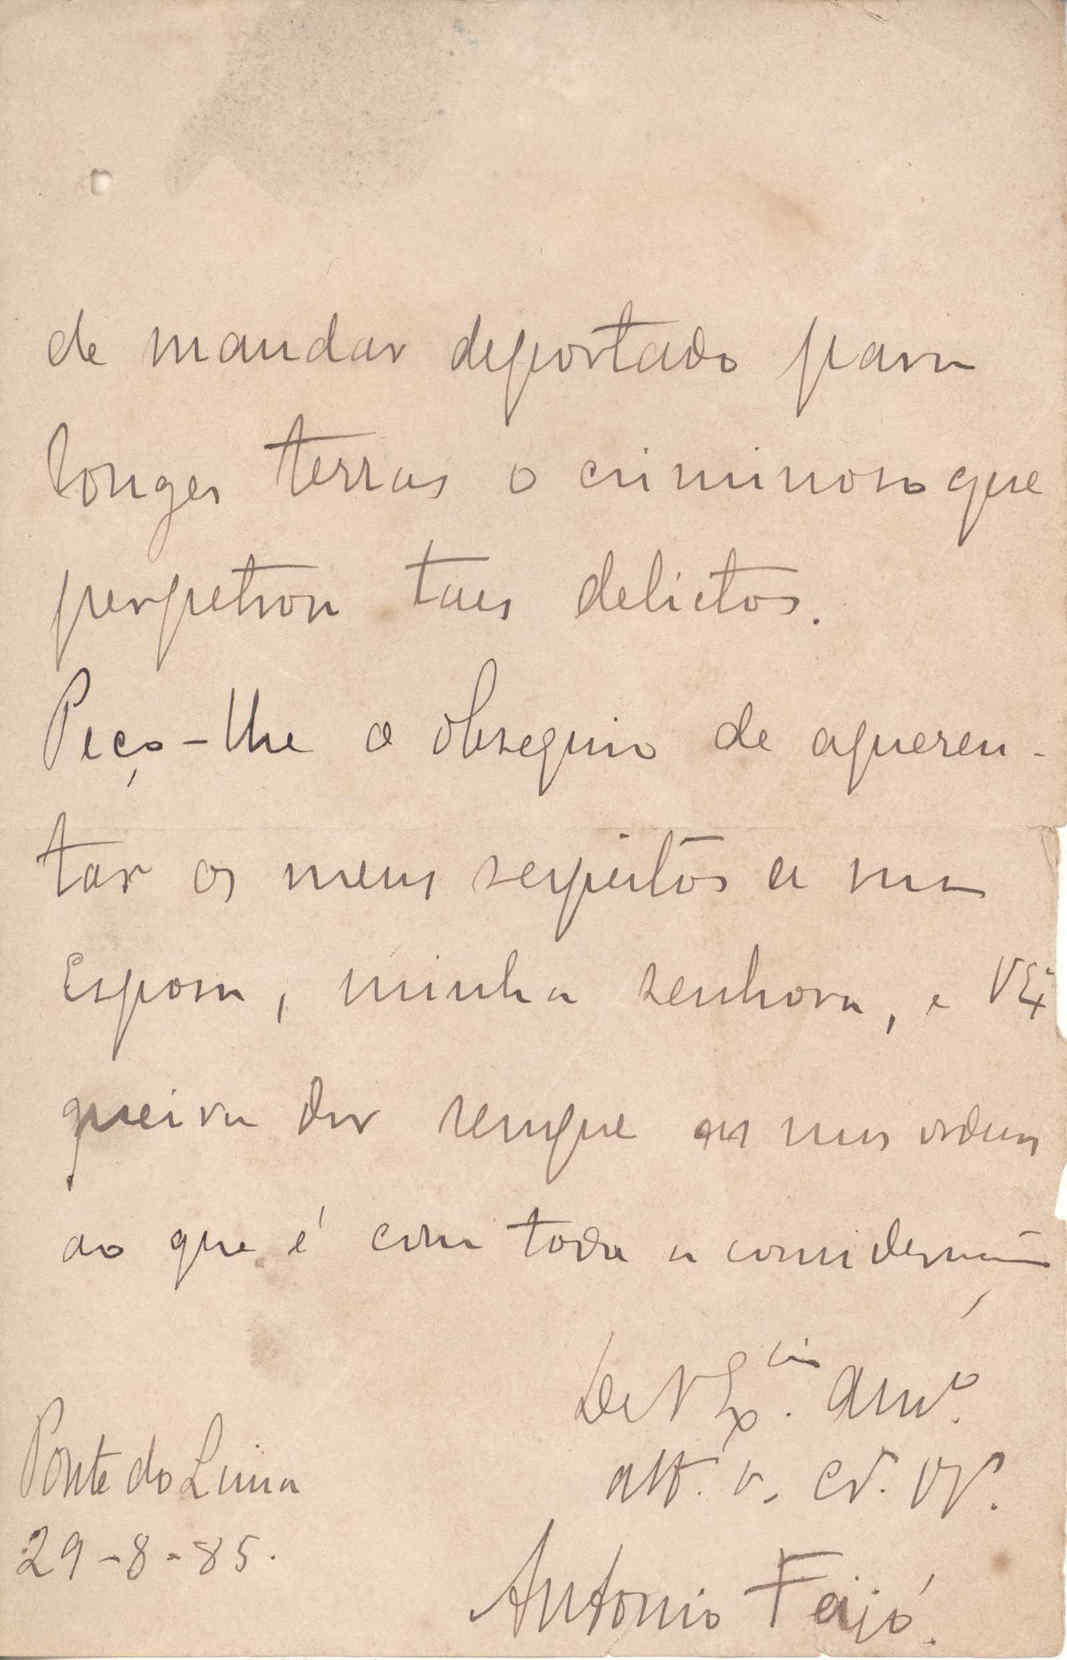 de mandar deportado para
longes terras o criminoso que
perpetrou taes delictos.
Peço-lhe o obsequio de apresen-
tar os meus respeitos a sua
Esposa, minha senhora, e V Ex
queira dar sempre as suas ordens
ao que é com toda a consideração
De V Ex.cia am.o
att. v. cr. obr.o
Ponte do Lima
29-8-85.
Antonio Feijó.